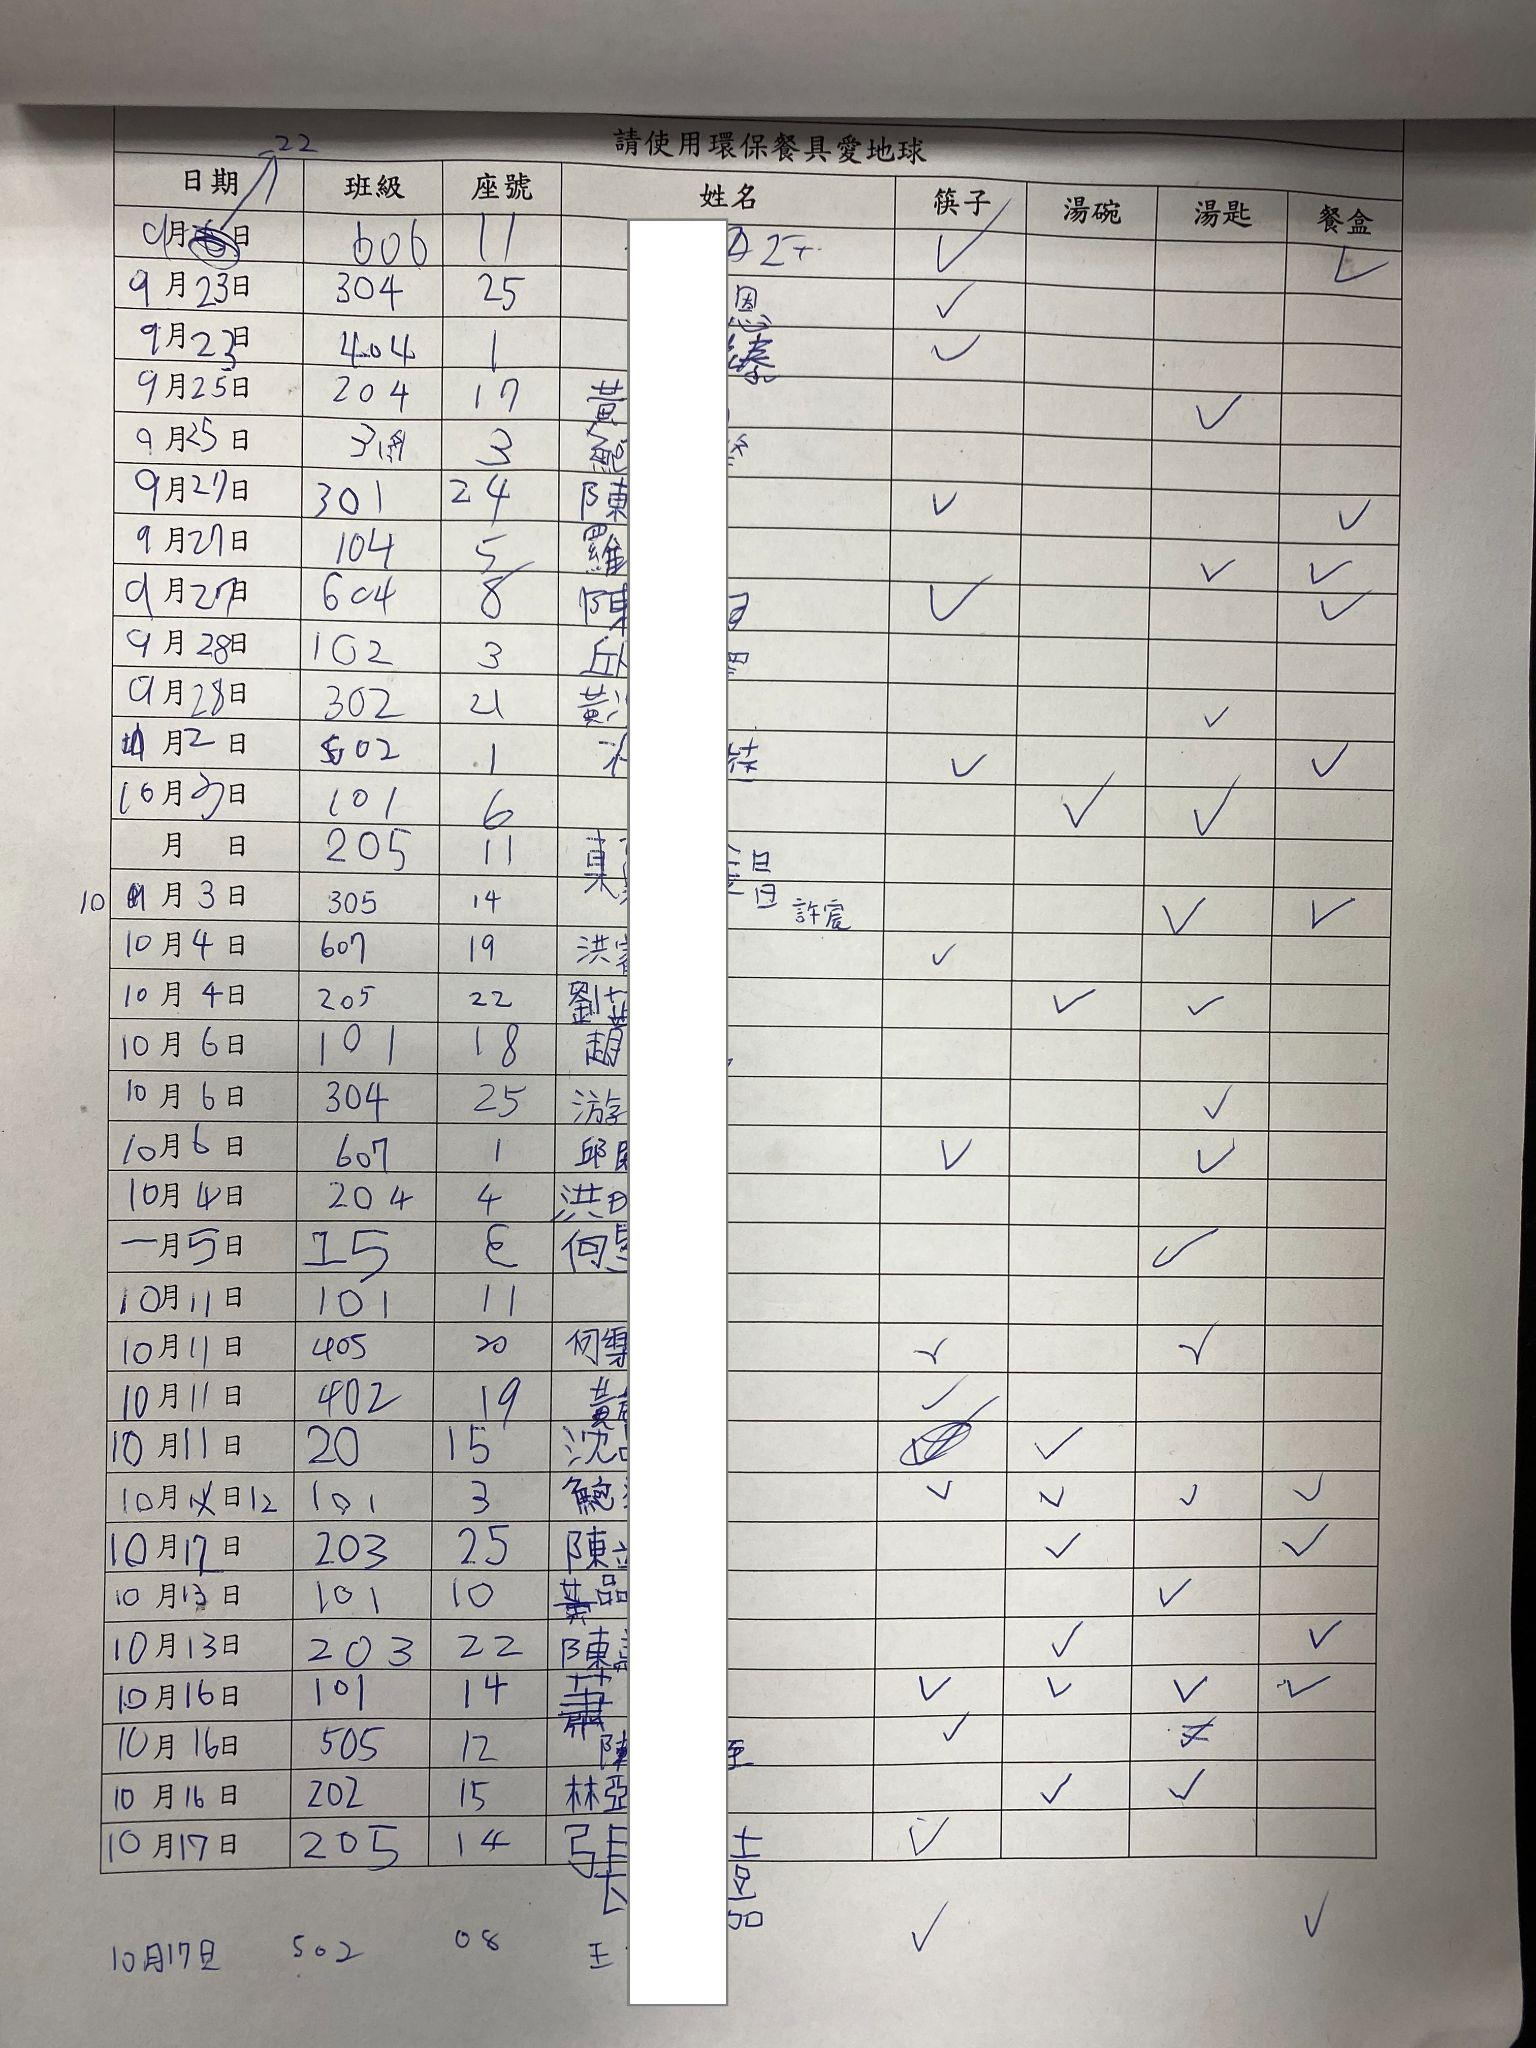 請使用環保餐具愛地球
日期 班級 座號 姓名 筷子 湯碗 湯匙 餐盒
9月22日 606 11 ✓ ✓
9月23日 304 25 恩 ✓
9月23日 404 1 ✓
9月25日 204 17 黃 ✓
9月25日 3 鮑
9月27日 301 24 陳 ✓ ✓
9月27日 104 5 羅 ✓ ✓
9月27日 604 8 陳 ✓ ✓
9月28日 102 3 丘
9月28日 302 21 黃 ✓
月2日 502 1 ✓ ✓
10月3日 101 6 ✓ ✓
月 日 205 11
10月3日 305 14 許宸 ✓ ✓
10月4日 607 19 洪 ✓
10月4日 205 22 劉 ✓ ✓
10月6日 101 18 趙
10月6日 304 25 游 ✓
10月6日 607 1 邱 ✓ ✓
10月4日 204 4 洪
一月5日 15 何 ✓
10月11日 101 11
10月11日 405 20 何 ✓ ✓
10月11日 402 19 黃 ✓
10月11日 20 15 沈 ✓
10月日12 101 3 鮑 ✓ ✓ ✓ ✓
10月12日 203 25 陳 ✓ ✓
10月13日 101 10 黃品 ✓
10月13日 203 22 陳 ✓ ✓
10月16日 101 14 蕭 ✓ ✓ ✓ ✓
10月16日 505 12 陳 ✓
10月16日 202 15 林亞 ✓ ✓
10月17日 205 14 張 ✓
10月17日 502 08 王 ✓ ✓